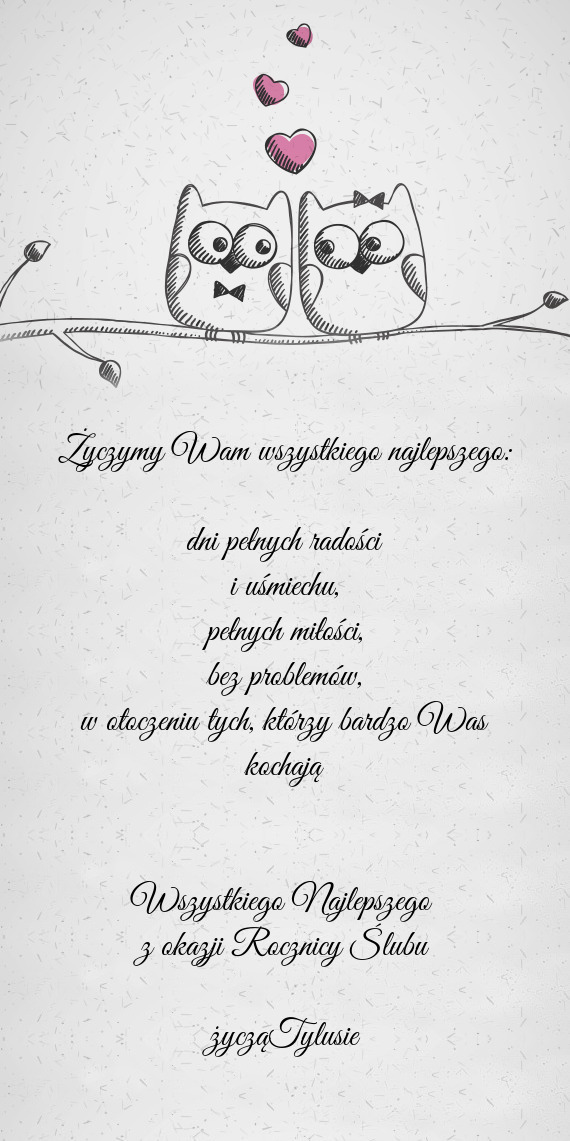 Życzymy Wam wszystkiego najlepszego:
dni pełnych radości
i uśmiechu,
pełnych miłości,
bez problemów,
w otoczeniu tych, którzy bardzo Was
kochają
Wszystkiego Najlepszego
z okazji Rocznicy Ślubu
życząTylusie